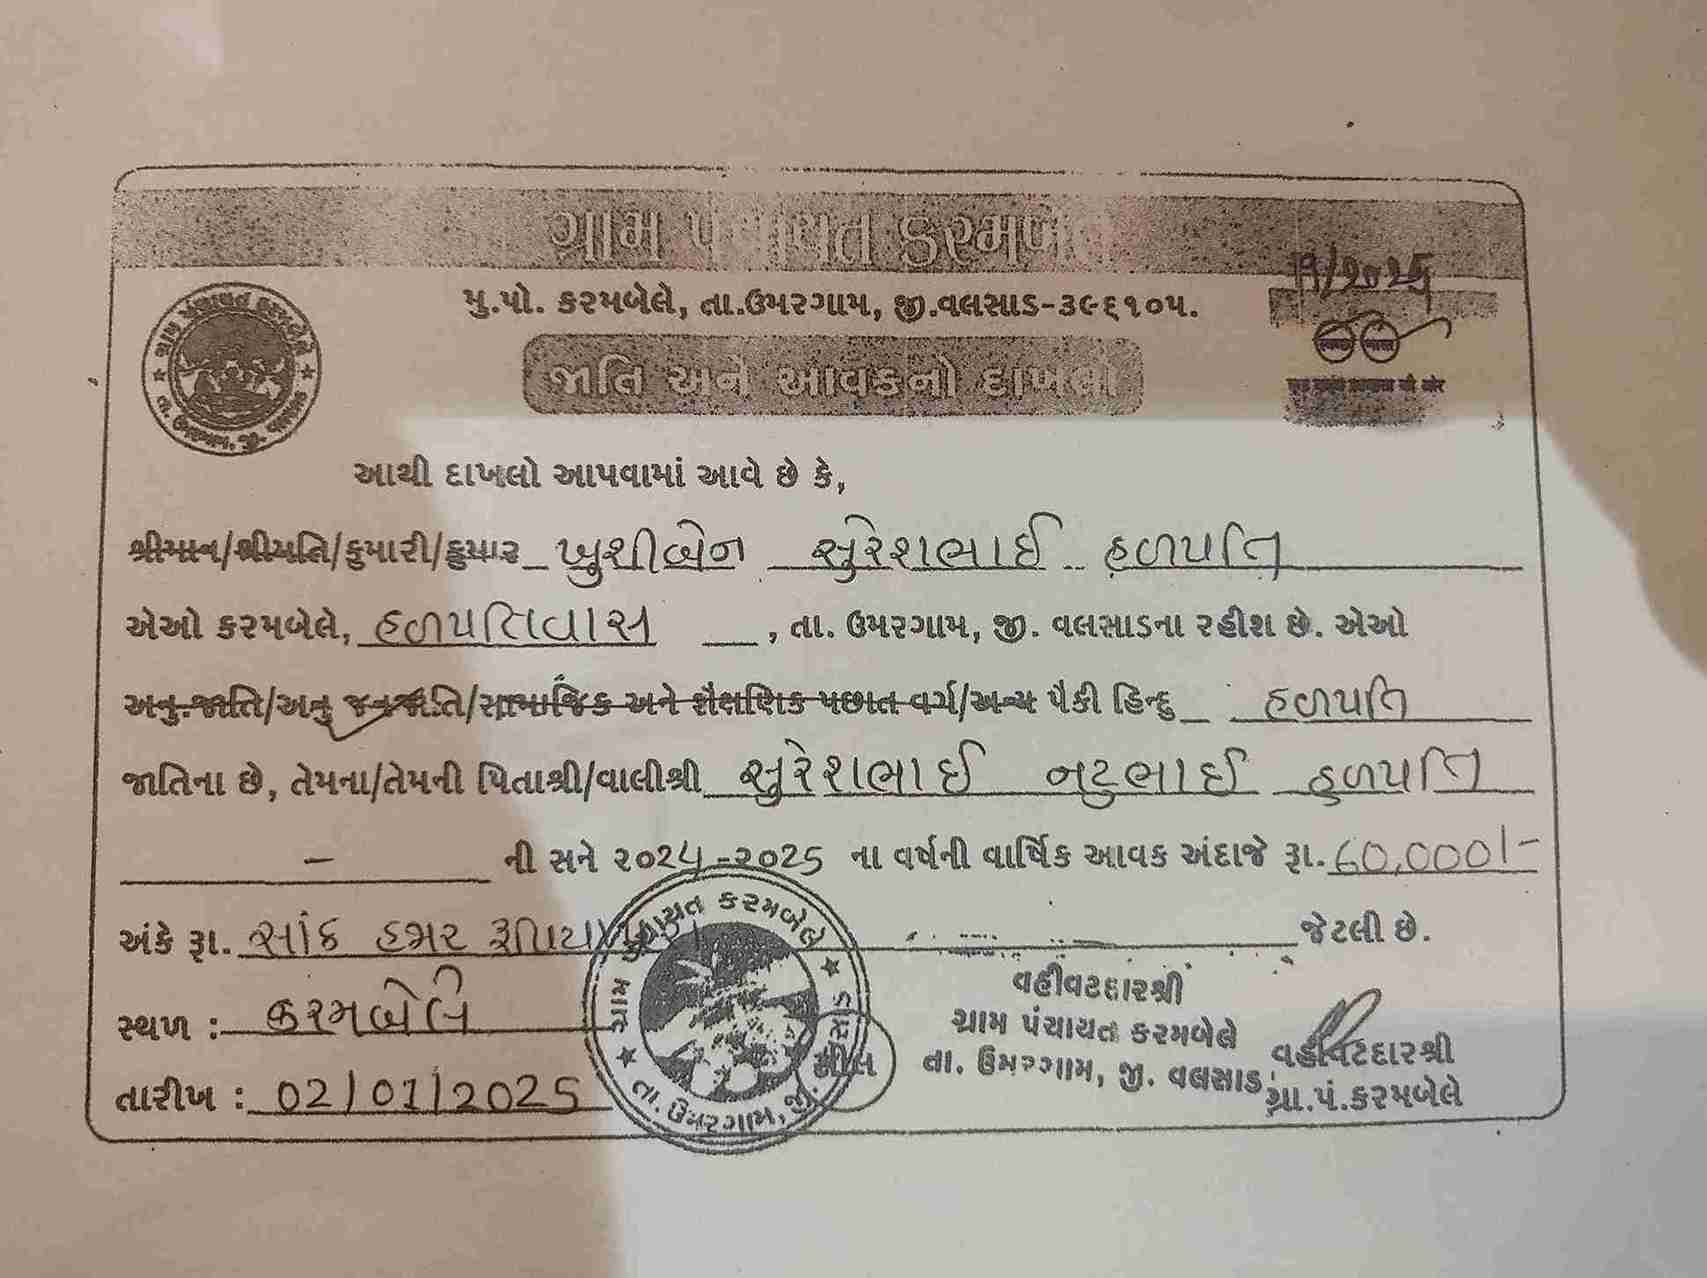 ગ્રામ પંચાયત કરમબેલે
૧૧/2025
મુ.પો. કરમબેલે, તા.ઉમરગામ, જી.વલસાડ-૩૯૬૧૦૫.
જાતિ અને આવકનો દાખલો
આથી દાખલો આપવામાં આવે છે કે,
શ્રીમાન/શ્રીમતિ/કુમારી/કુમાર ખુશીબેન સુરેશભાઈ હળપતિ
એઓ કરમબેલે, હળપતિવાસ , તા. ઉમરગામ, જી. વલસાડના રહીશ છે. એઓ
અનુ.જાતિ/અનુ જનજાતિ/સામાજિક અને શૈક્ષણિક પછાત વર્ગ/અન્ય પૈકી હિન્દુ હળપતિ
જાતિના છે, તેમના/તેમની પિતાશ્રી/વાલીશ્રી સુરેશભાઈ નટુભાઈ હળપતિ
– ની સને ૨૦૨૪-૨૦25 ના વર્ષની વાર્ષિક આવક અંદાજે રૂા. 60,000/-
અંકે રૂા. સાંઠ હજાર રૂપિયા પુરા જેટલી છે.
સ્થળ : કરમબેલે
તારીખ : 02/01/2025
ગ્રામ પંચાયત કરમબેલે
તા. ઉમરગામ, જી.
સીલ
વહીવટદારશ્રી
ગ્રામ પંચાયત કરમબેલે
તા. ઉમરગામ, જી. વલસાડ
વહીવટદારશ્રી
ગ્રા.પં.કરમબેલે